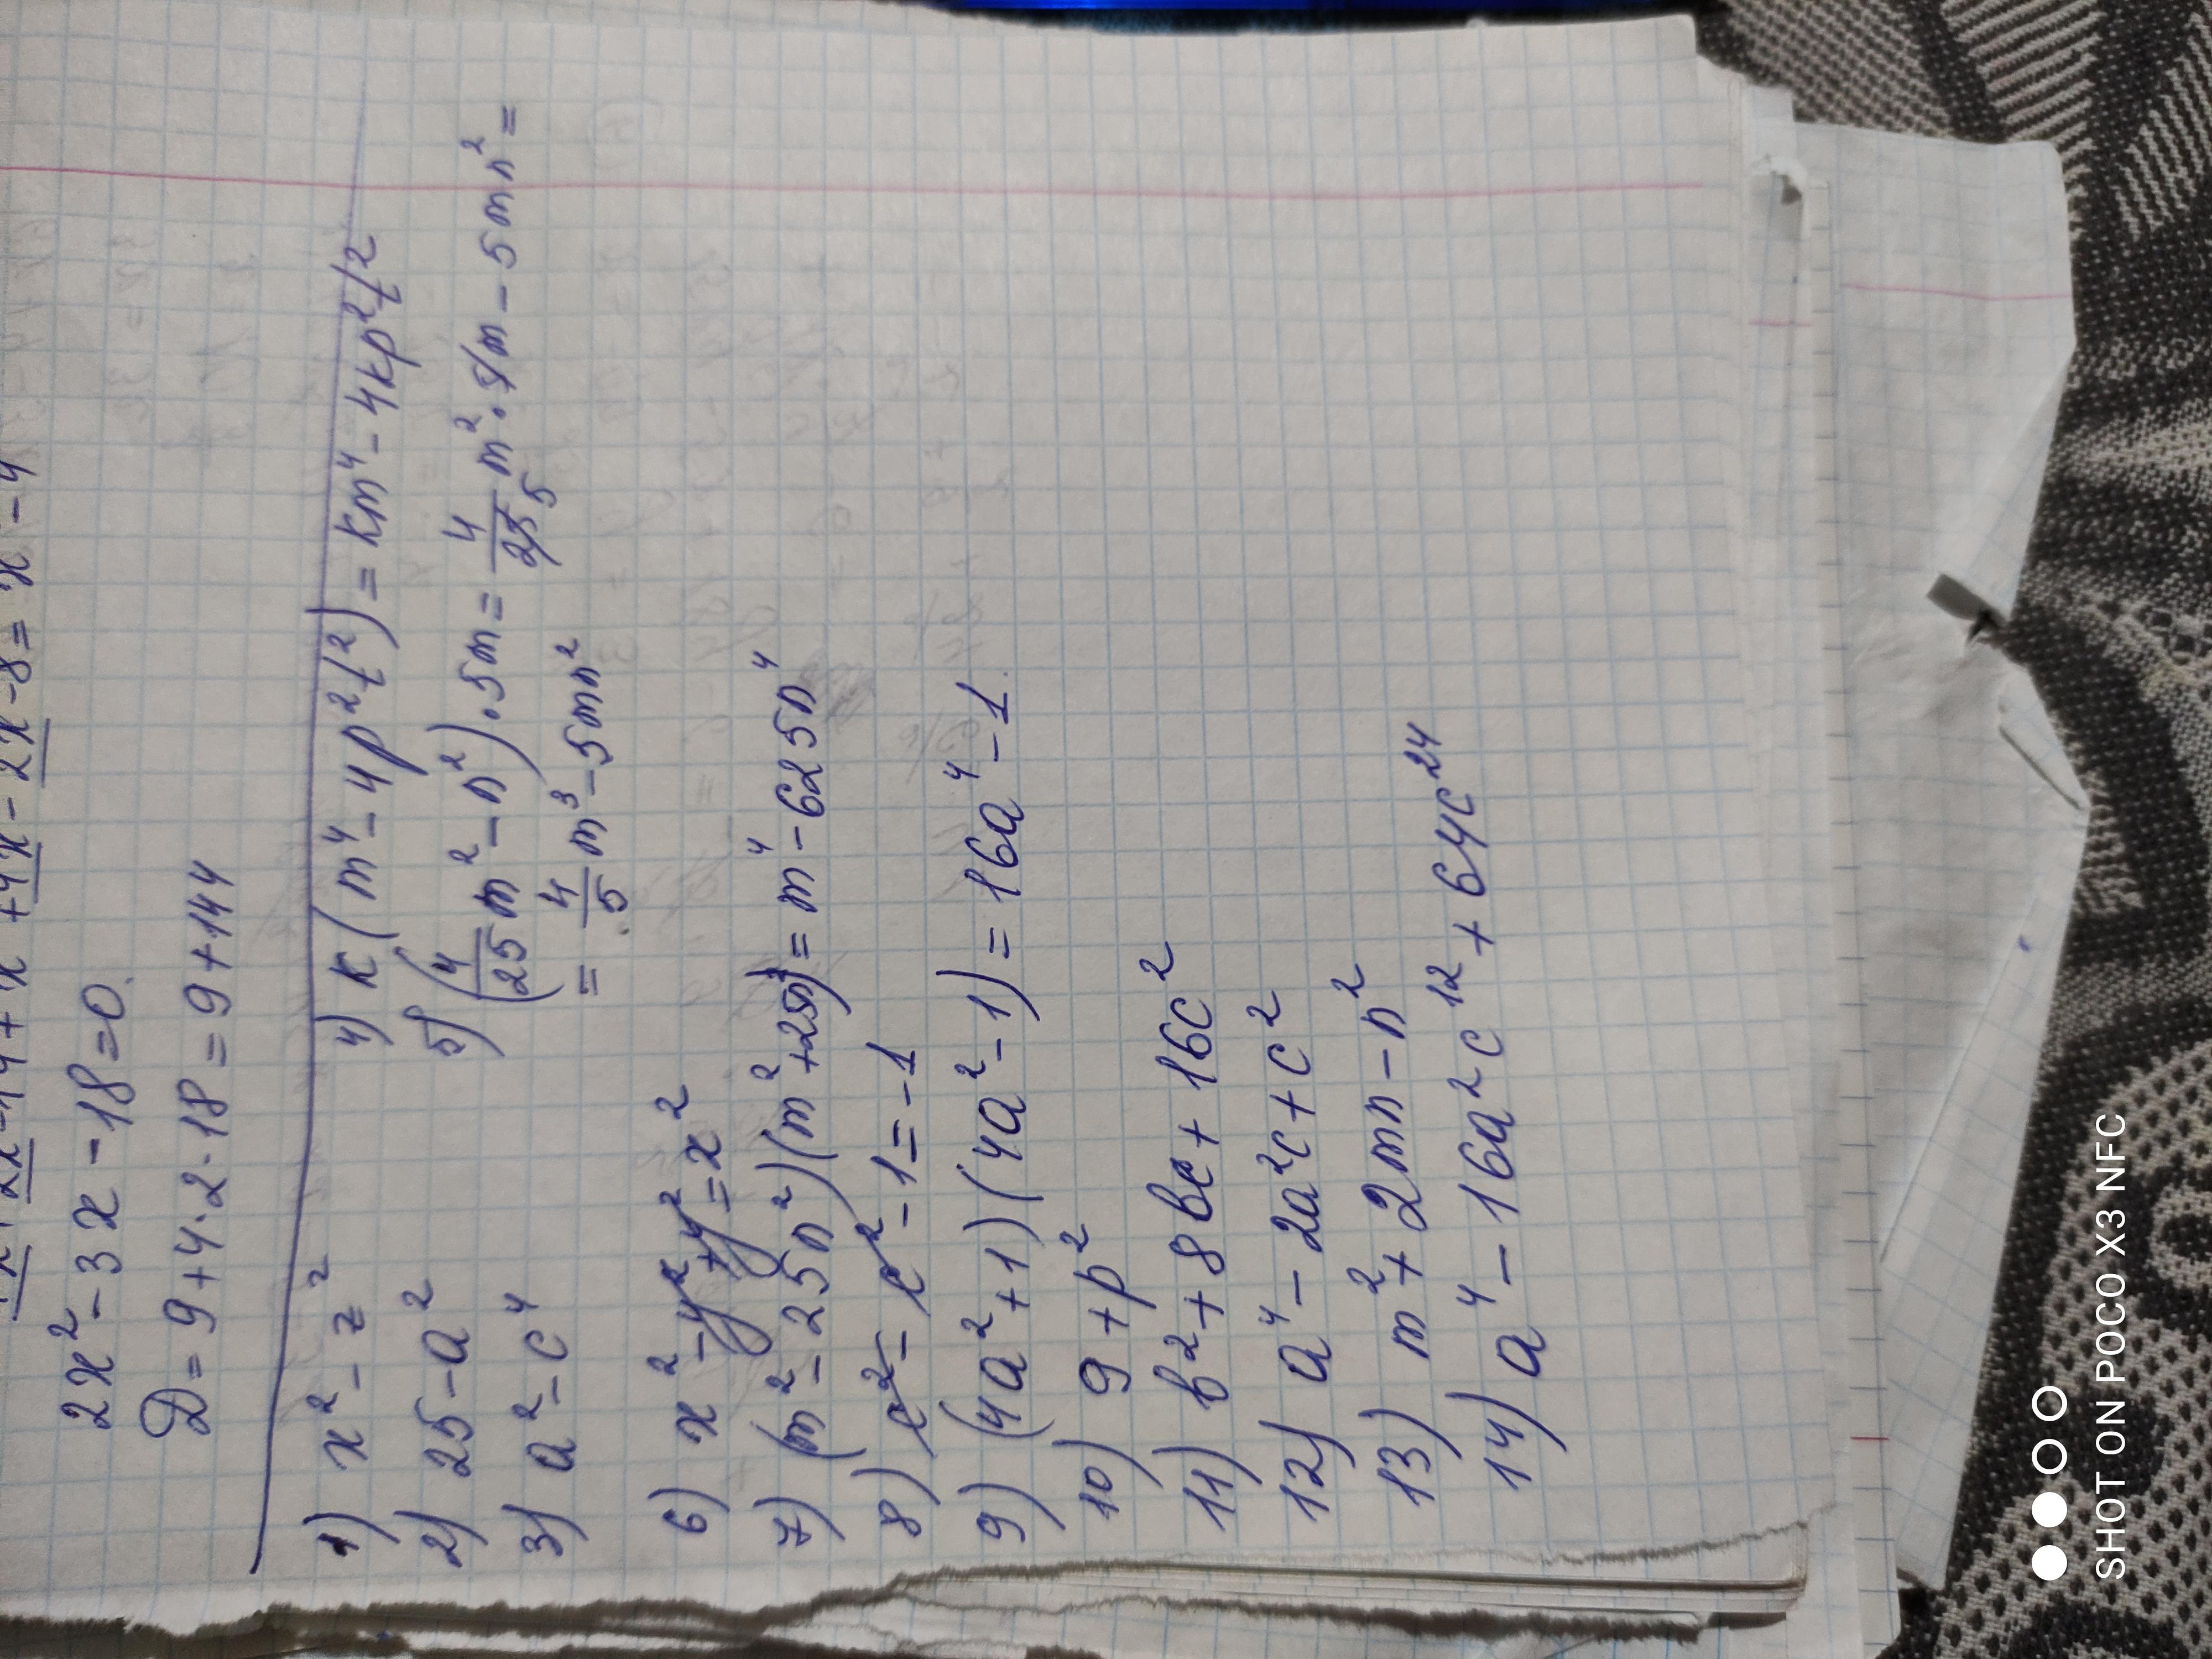 2x² - 3x - 18 = 0
Д = 9 + 4·2·18 = 9 + 144
1) x² - z²
2) 25 - a²
3) a² - c⁴
4) к(m⁴ - 4p²t²) = кm⁴ - 4кp²t²
5) (4/25 m² - n²)·5m = 4/25 m²·5m - 5mn² =
= 4/5 m³ - 5mn²
6) x² - y² + y² = x²
7) (m² - 25n²)(m² + 25n²) = m⁴ - 625n⁴
8) c² - c² - 1 = -1
9) (4a² + 1)(4a² - 1) = 16a⁴ - 1
10) 9 + p²
11) b² + 8bc + 16c²
12) a⁴ - 2a²c + c²
13) m² + 2mn - n²
14) a⁴ - 16a²c¹² + 64c²⁴
SHOT ON POCO X3 NFC